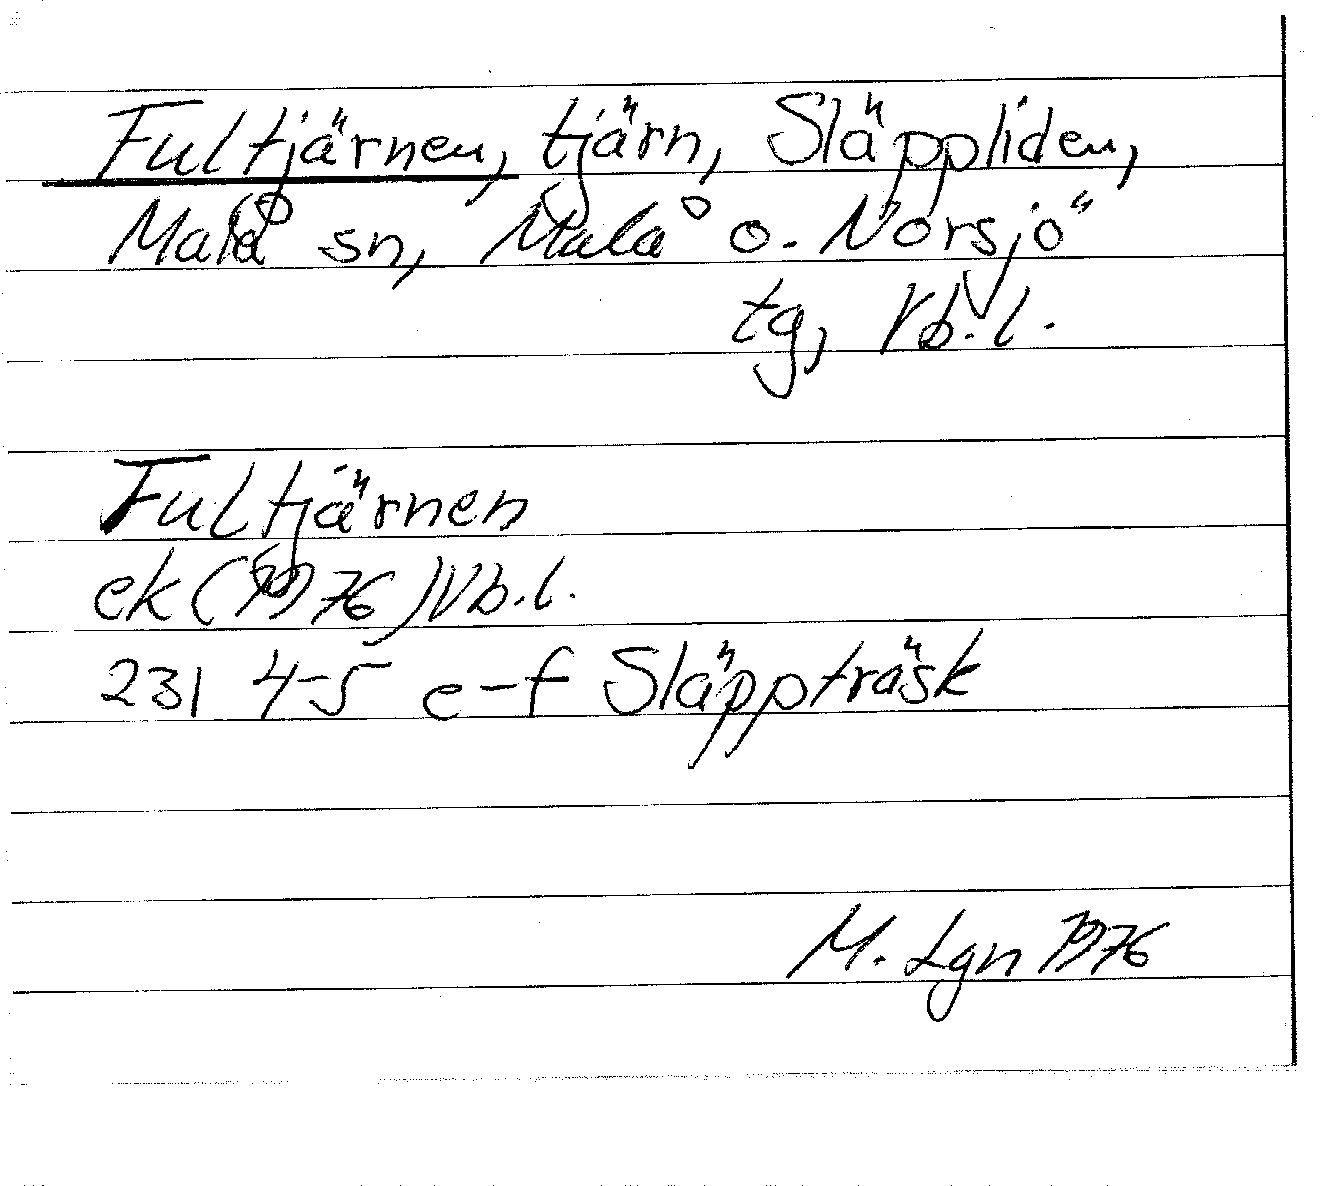 Fultjärnen, tjärn, Släppliden,
Malå sn, Malå o. Norsjö
tg, Vb. l.
Fultjärnen
ek (1976) Vb. l.
231 4-5 e-f Släppträsk
M. Lgn 1976